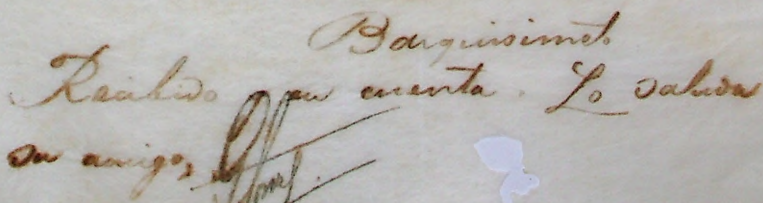 Barquisimeto
Recibido su cuenta. Lo saluda
su amigo,